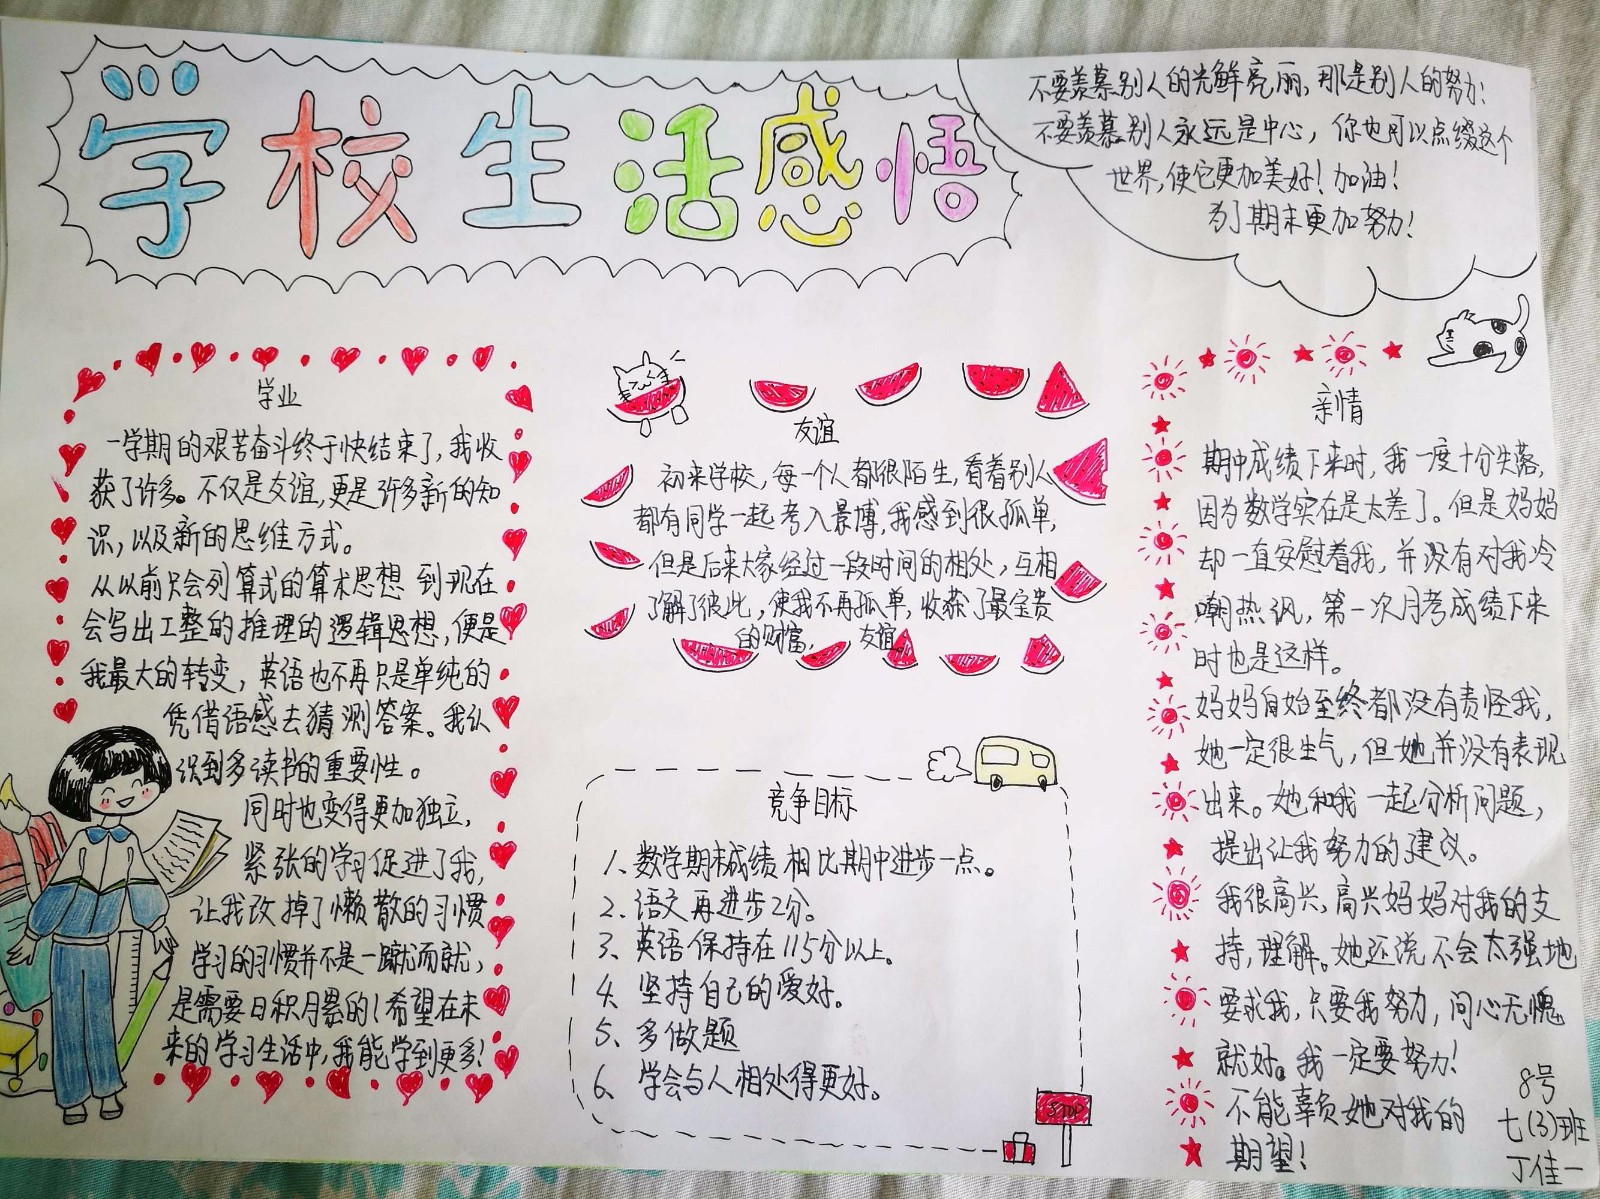 学校生活感悟
不要羡慕别人的光鲜亮丽,那是别人的努力!
不要羡慕别人永远是中心，你也可以点缀这个
世界,使它更加美好！加油！
为了期末更加努力！
学业
一学期的艰苦奋斗终于快结束了,我收
获了许多。不仅是友谊,更是许多新的知
识,以及新的思维方式。
从以前只会列算式的算术思想 到现在
会写出工整的推理的逻辑思想,便是
我最大的转变，英语也不再只是单纯的
凭借语感去猜测答案。我认
识到多读书的重要性。
同时也变得更加独立,
紧张的学习促进了我,
让我改掉了懒散的习惯
学习的习惯并不是一蹴而就,
是需要日积月累的！希望在未
来的学习生活中,我能学到更多！
友谊
初来学校，每一个人都很陌生,看着别人
都有同学一起考入景博,我感到很孤单,
但是后来大家经过一段时间的相处，互相
了解了彼此，使我不再孤单,收获了最宝贵
的财富， 友谊。
竞争目标
1、数学期末成绩相比期中进步一点。
2、语文再进步2分。
3、英语保持在115分以上。
4、坚持自己的爱好。
5、多做题
6、学会与人相处得更好。
STOP
亲情
期中成绩下来时,我一度十分失落,
因为数学实在是太差了。但是妈妈
却一直安慰着我,并没有对我冷
嘲热讽，第一次月考成绩下来
时也是这样。
妈妈自始至终都没有责怪我,
她一定很生气，但她并没有表现
出来。她和我一起分析问题,
提出让我努力的建议。
我很高兴,高兴妈妈对我的支
持,理解。她还说不会太强地
要求我,只要我努力,问心无愧
就好。我一定要努力！
不能辜负她对我的
期望！
8号
七(3)班
丁佳一